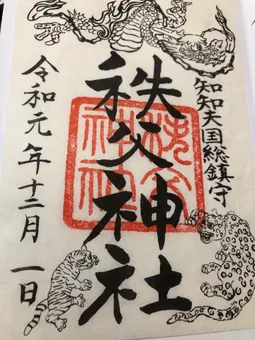 知知夫国総鎮守
秩父神社
令和元年十二月一日
秩父神社